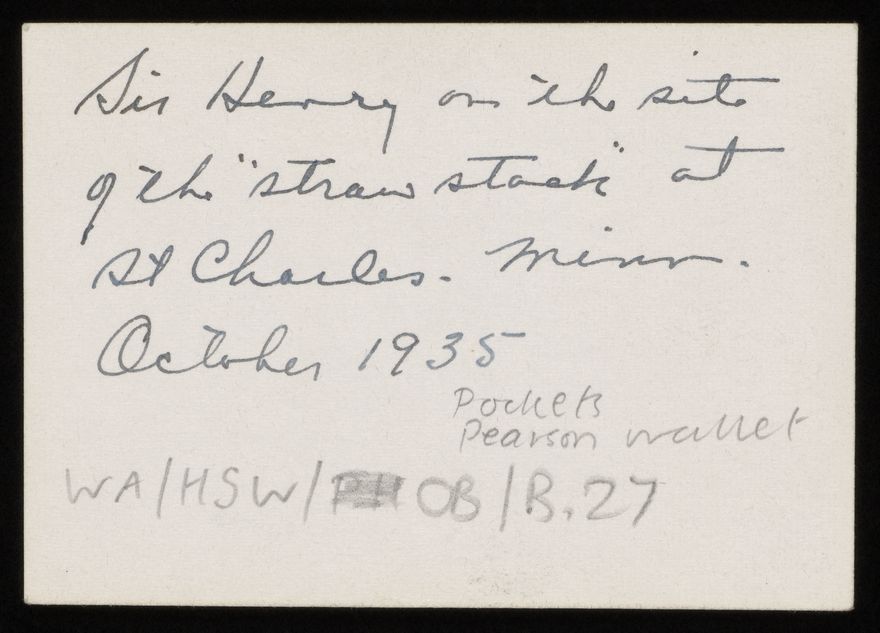 Sir Henry on the site
of the "straw stack" at
St Charles. Minn.
October 1935
Pockets
Pearson wallet
WA/HSW/OB/B.27